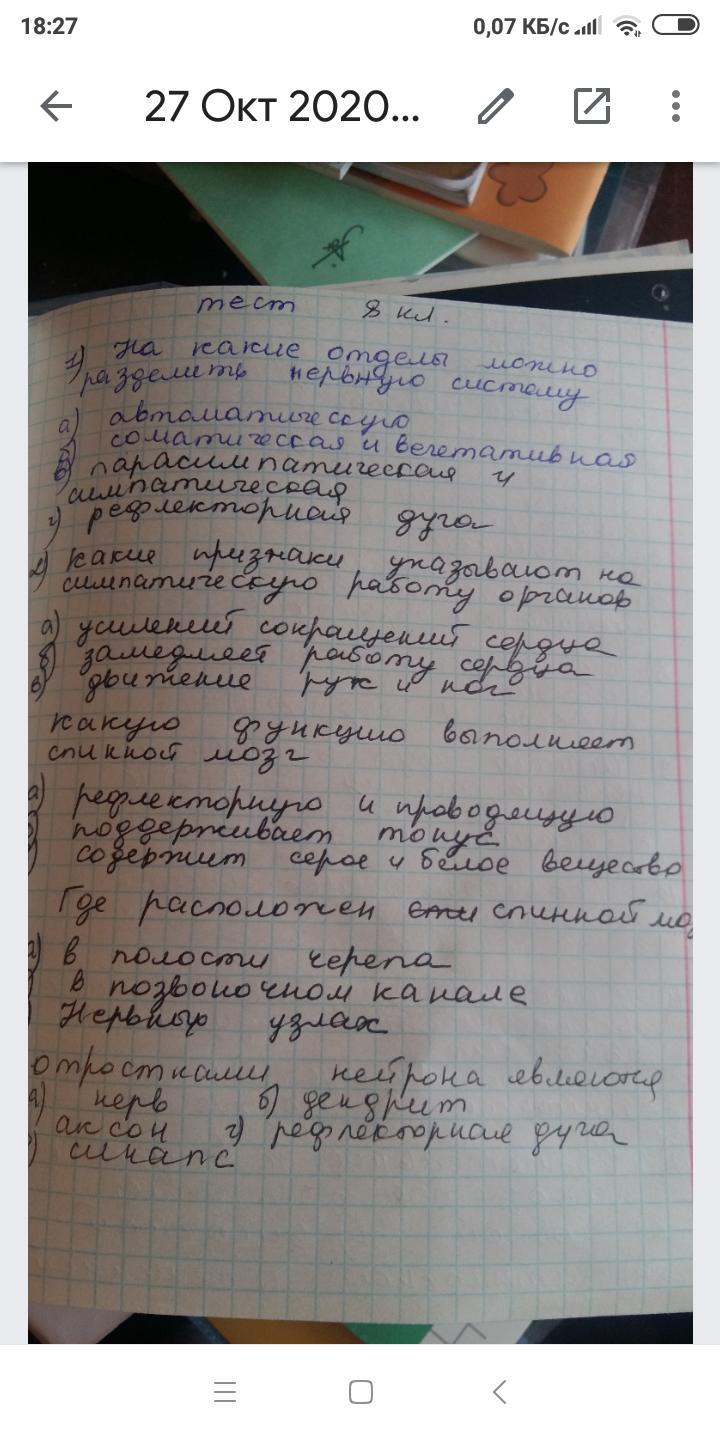 18:27 0,07 КБ/с
27 Окт 2020...
тест 8 кл.
1) На какие отделы можно
разделить нервную систему
а) автоматическую
б) соматическая и вегетативная
в) парасимпатическая и
симпатическая
г) рефлекторная дуга
2) какие признаки указывают на
симпатическую работу органов
а) усилений сокращений сердца
б) замедляет работу сердца
в) движение рук и ног
какую функцию выполняет
спинной мозг
а) рефлекторную и проводящую
поддерживает тонус
) содержит серое и белое вещество
Где расположен спинной моз
а) в полости черепа
) в позвоночном канале
Нервных узлах
отростками нейрона являются
а) нерв б) дендрит
аксон г) рефлекторная дуга
) синапс